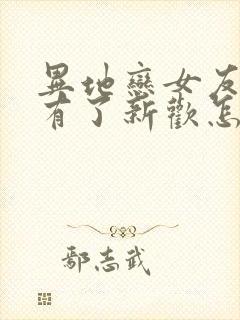 異地戀女友
有了新歡怎
鄢志武